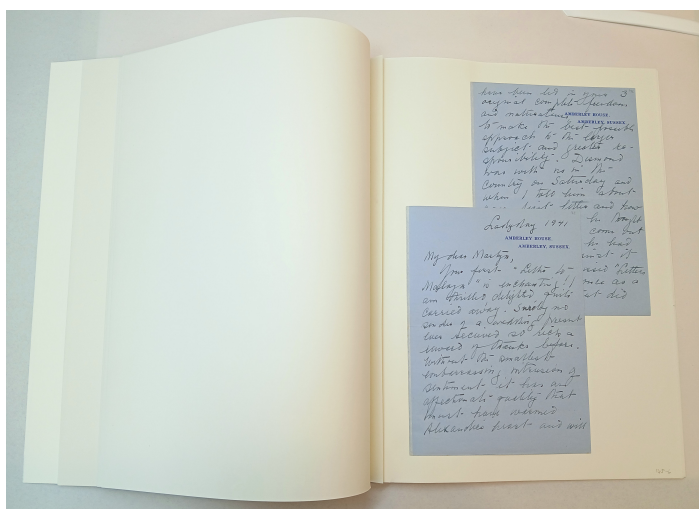 have been let in now 3
original complete freedom
and naturalness
AMBERLEY HOUSE,
AMBERLEY, SUSSEX.
to make the best possible
approach to the larger
subject and greater re-
sponsibility. Desmond
was with us in the
country on Saturday and
when I told him about
letter and how
he
come but
he had
it
"Letters
as a
did
Lady Day 1941
AMBERLEY HOUSE,
AMBERLEY, SUSSEX.
My dear Martyn,
Your first "Letter to
Malaya" is enchanting! I
am thrilled, delighted, quite
carried away. Surely no
sender of a wedding present
ever secured so rich a
reward of thanks before.
Without the smallest
embarrassing intrusion of
sentiment it has an
affectionate quality that
must have warmed
Alexandra's heart and will